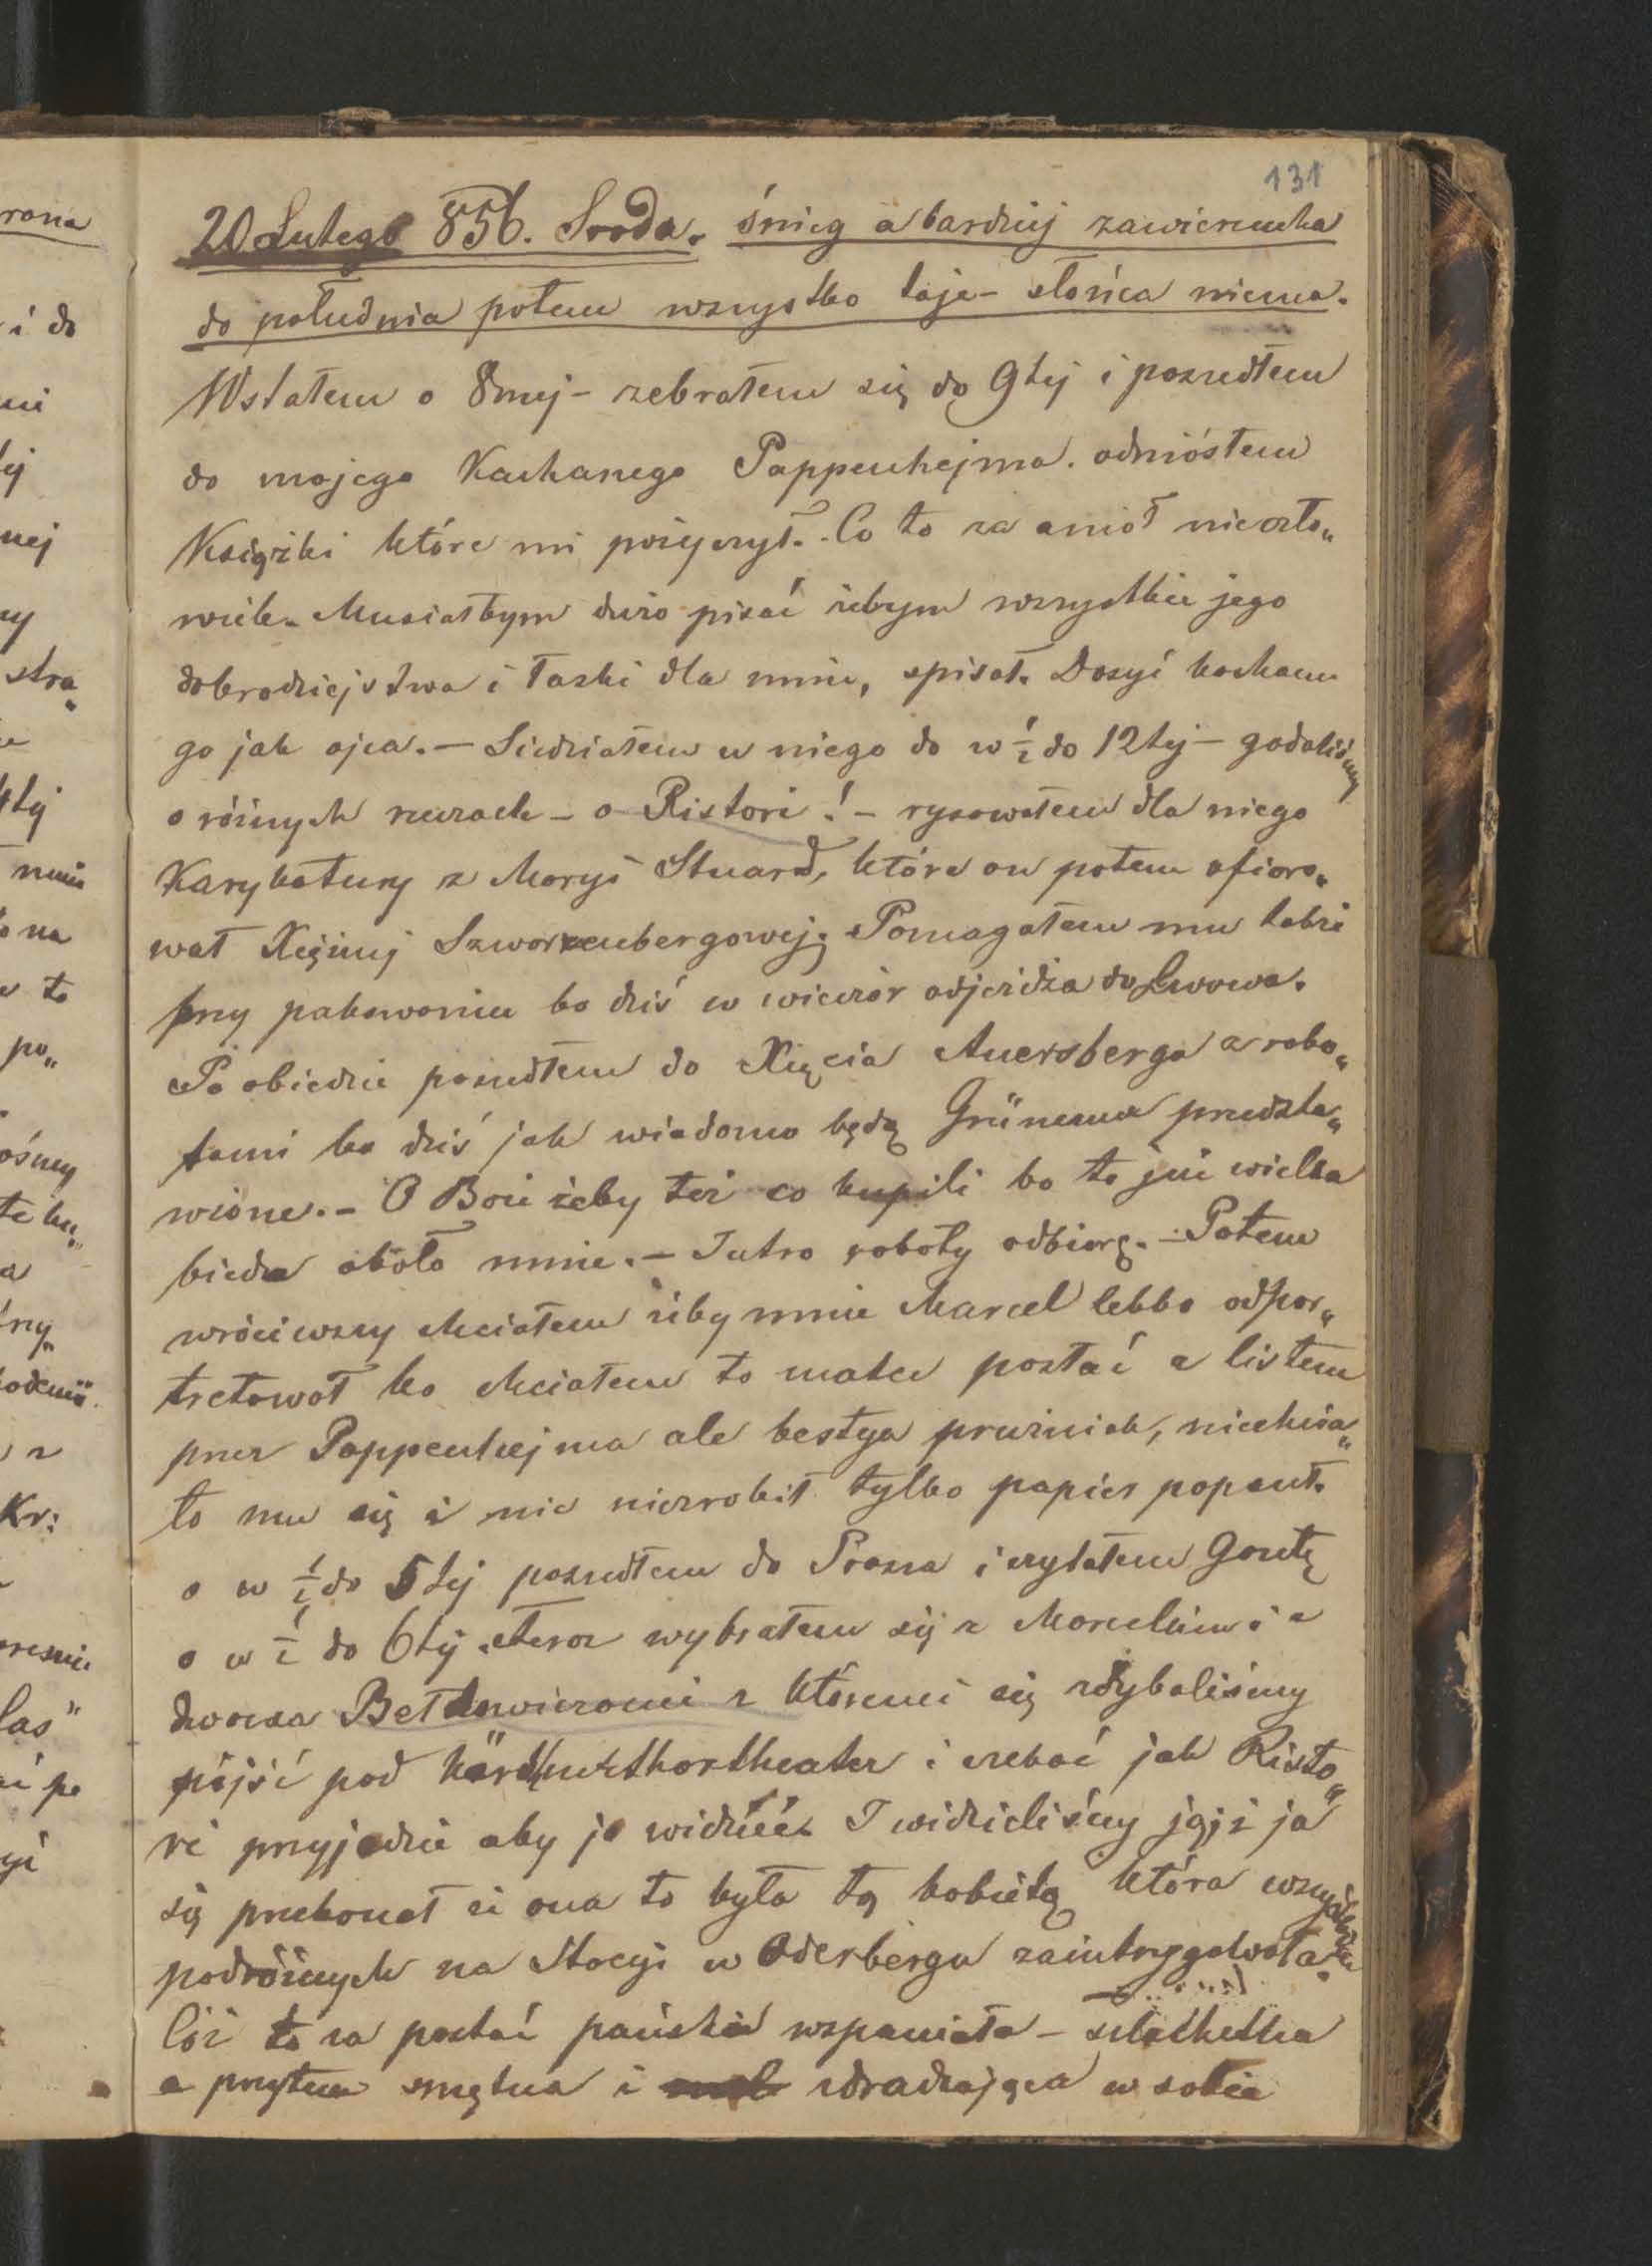 131
20 Lutego 856. Sroda. śnieg a bardziej zawierucha
do południa potem wszystko taje – słońca niema.
Wstałem o 8mej – zebrałem się do 9tej i poszedłem
do mojego Kochanego Pappenhejma. odniósłem
Książki które mi pożyczył. Co to za anioł nieczło„
wiek. Musiałbym dużo pisać żebym wszystkie jego
dobrodziejstwa i łaski dla mnie, spisał. Dosyć kocham
go jak ojca. – Siedziałem u niego do w ½ do 12tej – gadaliśmy
o różnych rzeczach – o Ristori! – rysowałem dla niego
Karykatury z Maryi Stuard, które on potem ofiaro„
wał Xiężnej Szwarzenbergowej; Pomagałem mu także
przy pakowaniu bo dziś w wieczór odjeżdża do Lwowa.
Po obiedzie poszedłem do Xięcia Auersberga z robo„
tami bo dziś jak wiadomo będą Grünemu przedsta„
wione. – O Boże żeby też co kupili bo to już wielka
bieda około mnie. – Jutro roboty odbiorę. – Potem
wróciwszy chciałem żeby mnie Marcel lekko odpor„
tretował bo chciałem to matce posłać z listem
przez Pappenhejma ale bestya próżniak, niechcia„
ło mu się i nic niezrobił tylko papier popsuł.
o w ½ do 5tej poszedłem do Prosza i czytałem Gazetę
o w ½ do 6tej. teraz wybrałem się z Marcelim i z
dwoma Bełdowiczami z któremi się zdybaliśmy
pójść pod Kärthnerthortheater i czekać jak Risto„
ri przyjedzie aby ją widzieć. I widzieliśmy ją; i ja
się przekonał że ona to była tą kobietą która wszystkich
podróżnych na Stacyi w Oderbergu zaintrygowała.
Cóż to za postać pańska wspaniała – szlachetna
a przytem smętna i zdradzająca w sobie
rona
i do
nej
stra„
4tej
mnie
na
to
po„
ośmy
Kr:
las"